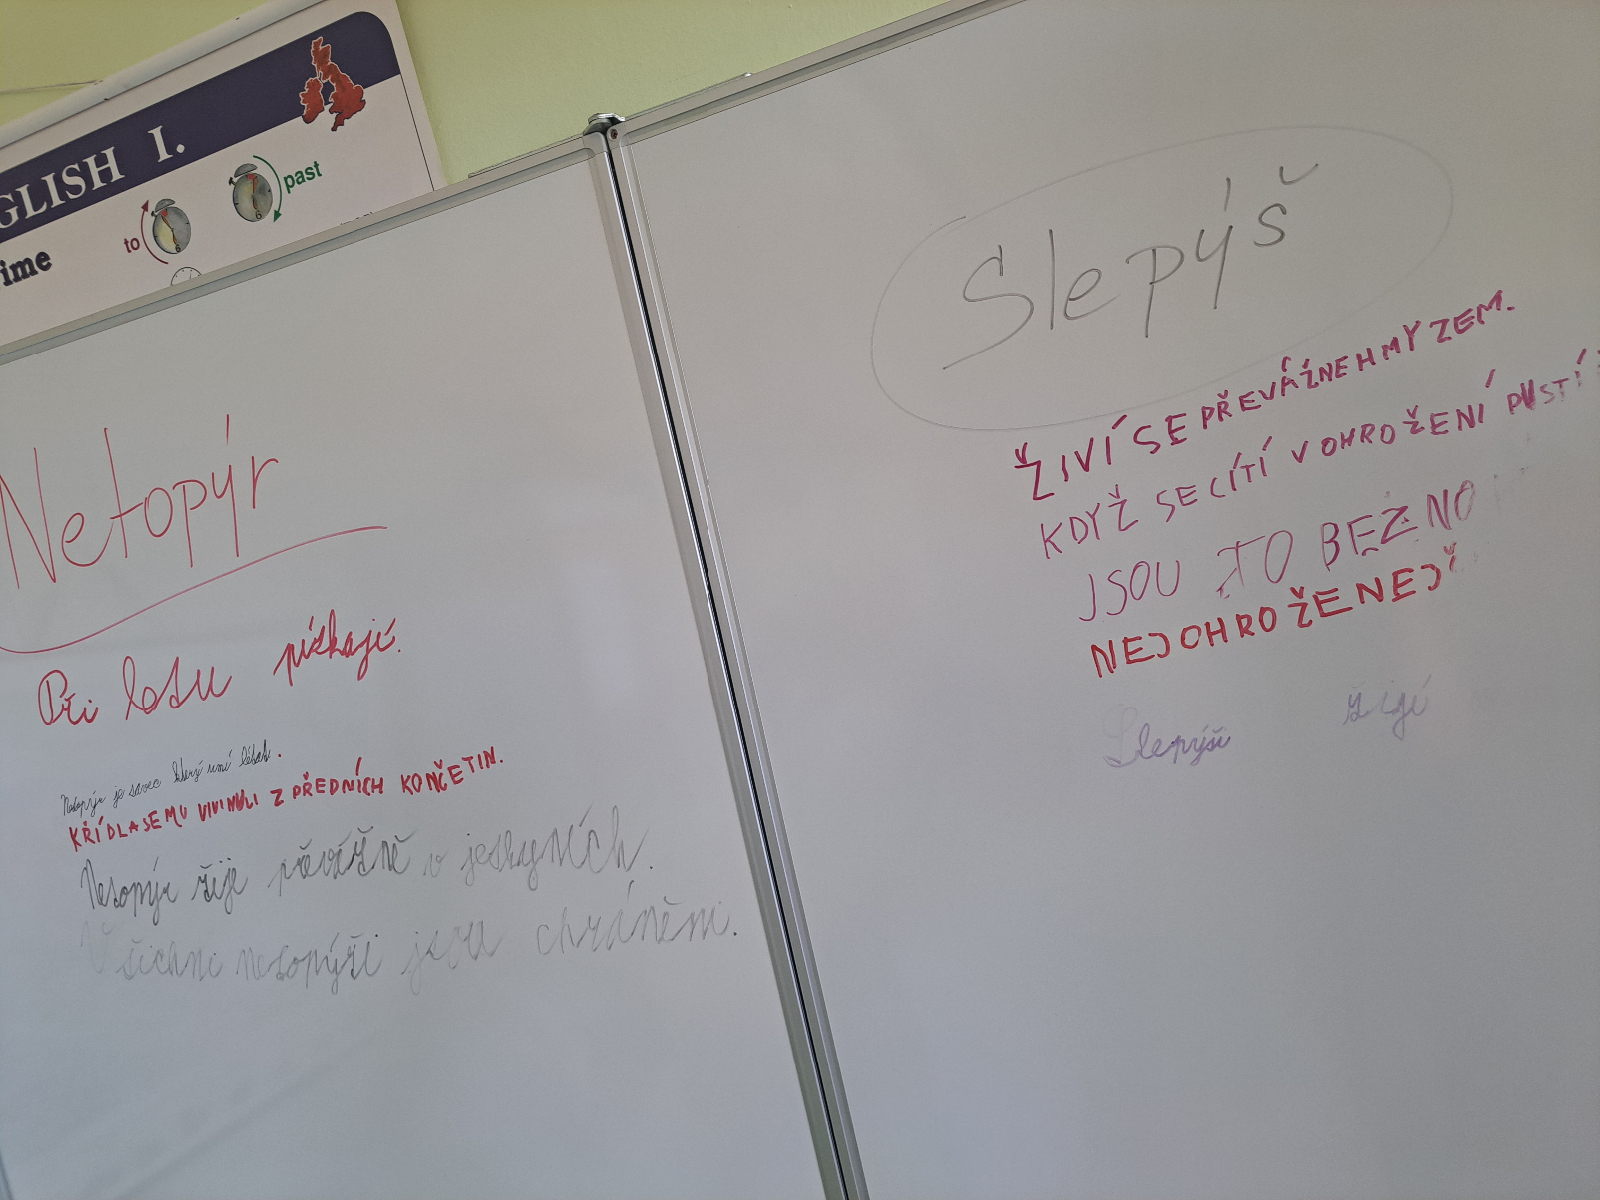 GLISH I.
ime
to
past
6
6
Netopýr
Při letu pískají.
Netopýr je savec který umí létat.
KŘÍDLA SE MU VIVINULI Z PŘEDNÍCH KONČETIN.
Netopýr žije převážně v jeskyních.
Všichni netopýři jsou chráněni.
Slepýš
ŽIVÍ SE PŘEVÁŽNE HMYZEM.
KDYŽ SE CÍTÍ V OHROŽENÍ PUSTÍ
JSOU TO BEZNO
NEJOHROŽENEJŠ
Slepýši žijí